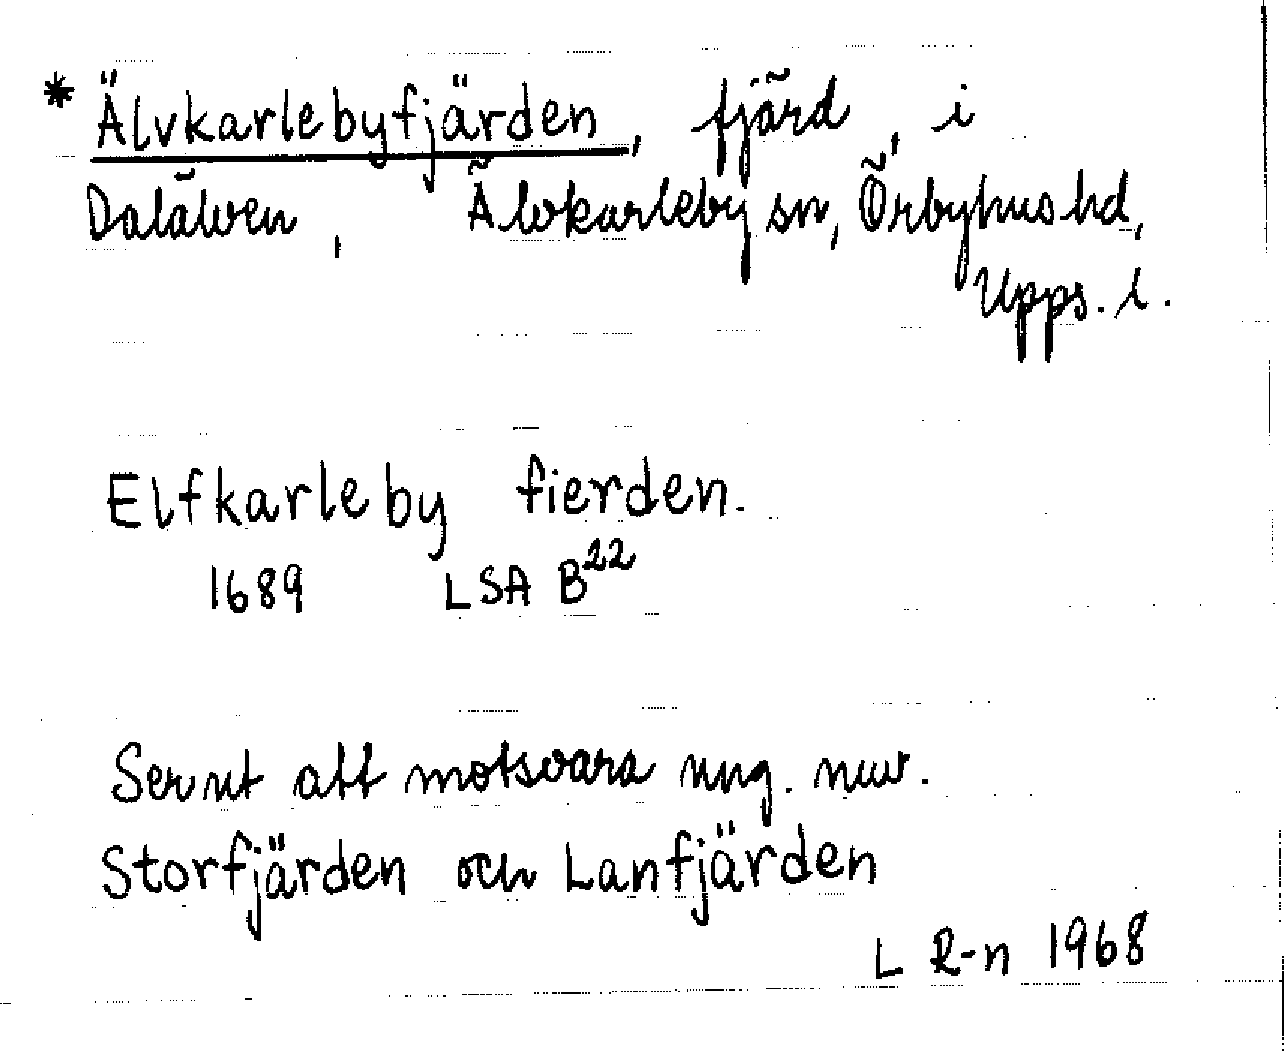 * Älvkarlebyfjärden, fjärd, i
Dalälven, Älvkarleby sn, Örbyhus hd,
Upps. l.
Elfkarleby fierden.
1689 LSA B22
Ser ut att motsvara ung. nuv.
Storfjärden och Lanfjärden
L R-n 1968